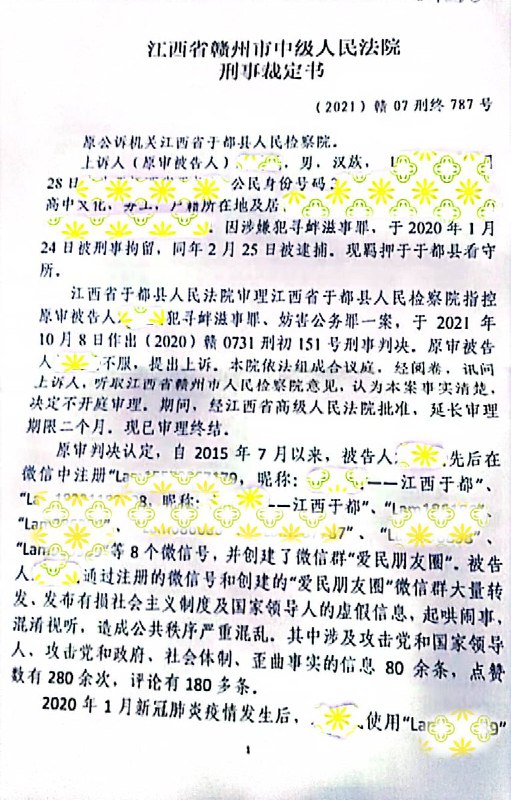 江西省赣州市中级人民法院
刑事裁定书
（2021）赣 07 刑终 787 号
原公诉机关江西省于都县人民检察院。
上诉人（原审被告人） ，男，汉族，
28 日 公民身份号码
高中文化，务工，户籍所在地及居
。因涉嫌犯寻衅滋事罪，于 2020 年 1 月
24 日被刑事拘留，同年 2 月 25 日被逮捕。现羁押于于都县看守
所。
江西省于都县人民法院审理江西省于都县人民检察院指控
原审被告人 犯寻衅滋事罪、妨害公务罪一案，于 2021 年
10 月 8 日作出（2020）赣 0731 刑初 151 号刑事判决。原审被告
人 不服，提出上诉。本院依法组成合议庭，经阅卷，讯问
上诉人，听取江西省赣州市人民检察院意见，认为本案事实清楚，
决定不开庭审理。期间，经江西省高级人民法院批准，延长审理
期限二个月。现已审理终结。
原审判决认定，自 2015 年 7 月以来，被告人 先后在
微信中注册“Lam ，昵称： ——江西于都”、
“La 8，昵称： --江西于都”、“Lam
“Lam 、 7”、“L ”、
“Lam ”等 8 个微信号，并创建了微信群“爱民朋友圈”。被告
人 通过注册的微信号和创建的“爱民朋友圈”微信群大量转
发、发布有损社会主义制度及国家领导人的虚假信息，起哄闹事，
混淆视听，造成公共秩序严重混乱。其中涉及攻击党和国家领导
人、攻击党和政府、社会体制、歪曲事实的信息 80 余条，点赞
数有 280 余次，评论有 180 多条。
2020 年 1 月新冠肺炎疫情发生后， 使用“Lam 9”
1